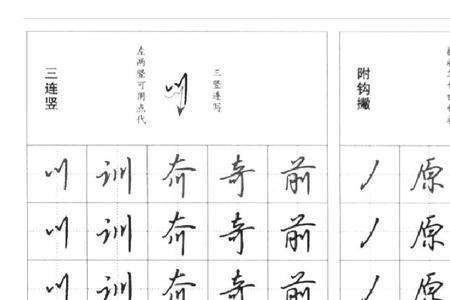 三连竖
左两竖可用点代
三竖连写
附钩撇
川 训 奔 奇 前 丿 原
川 训 奔 奇 前 丿 原
川 训 奔 奇 前 丿 原